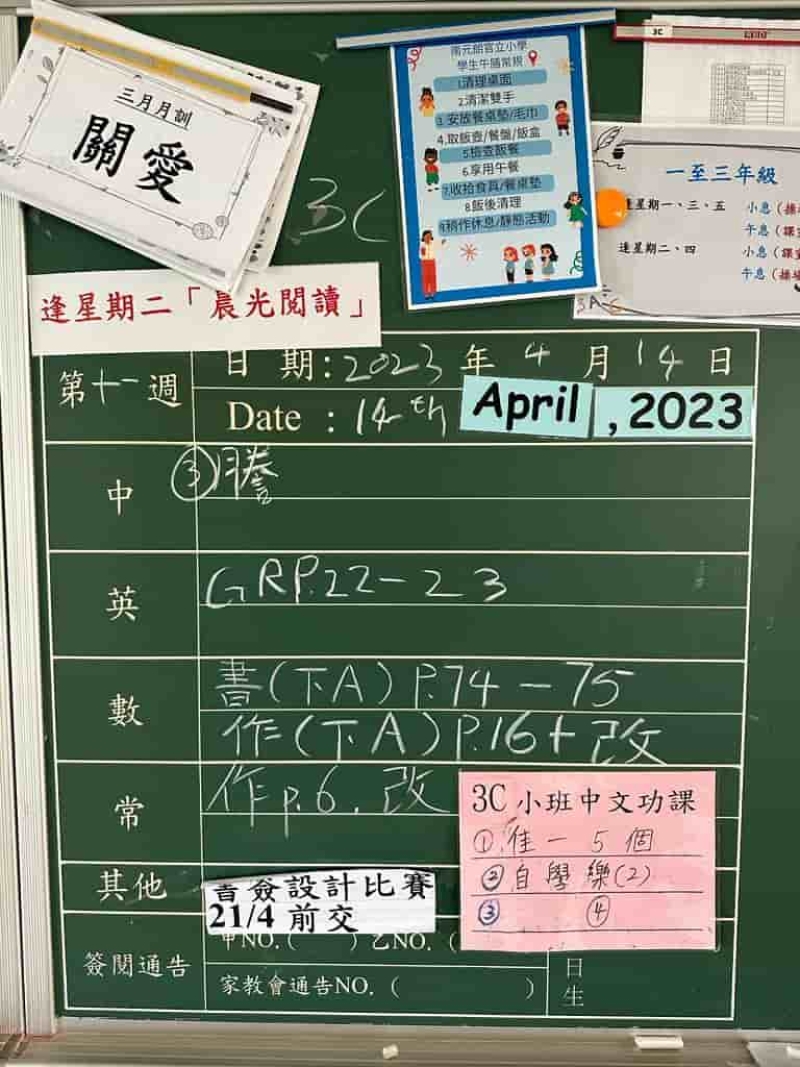 三月月訓
關愛
南元朗官立小學
學生午膳常規
1清理桌面
2清潔雙手
3.安放餐桌墊/毛巾
4.取飯壺/餐盤/飯盒
5檢查飯餐
6.享用午餐
7.收拾食具/餐桌墊
8.飯後清理
9稍作休息/靜態活動
3C
一至三年級
逢星期一、三、五
小息(操
午息(課室
逢星期二、四
小息(課室
午息(操場
3A
3C
逢星期二「晨光閱讀」
第十一週
日 期:2023 年 4 月 14 日
Date : 14th April , 2023
中
③謄
英
GRP.22-23
數
書(下A) P.74-75
作(下A) P.16+改
常
作p.6.改
3C 小班中文功課
①.佳一 5 個
②自學樂(2)
③ ④
其他
書簽設計比賽
21/4 前交
簽閱通告
甲NO.( ) 乙NO. (
家教會通告NO. ( )
日
生